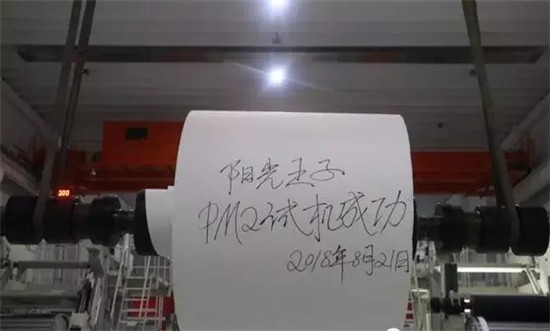 阳光王子
PM2试机成功
2018年8月21日
300